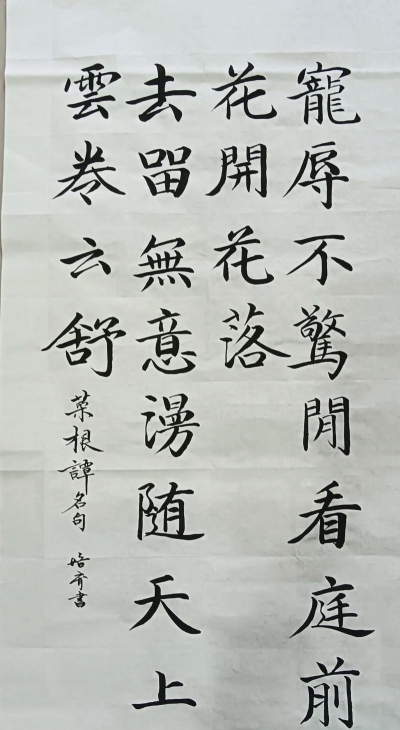 寵辱不驚閒看庭前
花開花落
去留無意漫随天上
雲卷云舒
菜根譚名句 培育書